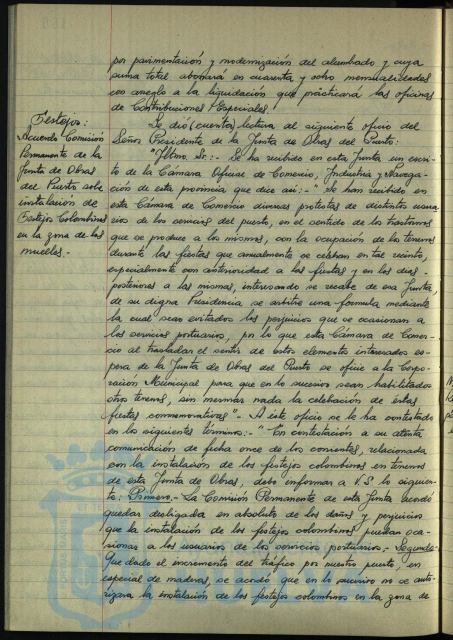 por pavimentación y modernización del alumbrado y cuya
suma total abonará en cuarenta y ocho mensualidades
con arreglo a la liquidación que practicará las oficinas
de Contribuciones Especiales.
Festejos:
Acuerdo Comisión
Permanente de la
Junta de Obras
del Puerto sobre
instalación de
Festejos Colombinos
en la zona de los
muelles.-
Se dió (cuenta) lectura del siguiente oficio del
Señor Presidente de la Junta de Obras del Puerto:
"Iltmo. Sr.:- Se ha recibido en esta Junta un escri-
to de la Cámara Oficial de Comercio, Industria y Navega-
ción de esta provincia que dice así:-" Se han recibido en
esta Cámara de Comercio diversas protestas de distintos usua-
rios de los servicios del puerto, en el sentido de los trastornos
que se produce a los mismos, con la ocupación de los terrenos
durante las fiestas que anualmente se celebran en tal recinto,
especialmente con anterioridad a las fiestas y en los dias
posteriores a las mismas, interesando se recabe de esa Junta,
de su digna Presidencia, se arbitre una formula mediante
la cual sean evitados los perjuicios que se ocasionan a
los servicios portuarios, por lo que esta Cámara de Comer-
cio al trasladar el sentir de estos elementos interesados es-
pera de la Junta de Obras del Puerto se oficie a la Corpo-
ración Municipal para que en lo sucesivo sean habilitados
otros terrenos, sin mermar nada la celebración de estas
fiestas conmemorativas".- A este oficio se le ha contestado
en los siguientes términos:-" En contestación a su atenta
comunicación de fecha once de los corrientes, relacionada
con la instalación de los festejos colombinos en terrenos
de esta Junta de Obras, debo informar a V.S. lo siguien-
te: Primero.- La Comisión Permanente de esta Junta acordó
quedar desligada en absoluto de los daños y perjuicios
que la instalación de los festejos colombinos puedan oca-
sionar a los usuarios de los servicios portuarios.- Segundo-
Que dado el incremento del tráfico por nuestro puerto, en
especial de maderas, se acordó que en lo sucesivo no se auto-
rizara la instalación de los festejos colombinos en la zona de